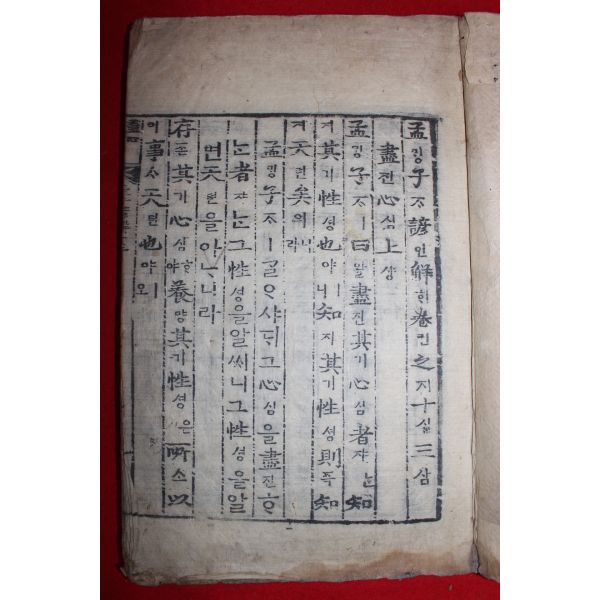 孟ᄆᆡᆼ子ᄌᆞ諺언解ᄒᆡ卷권之지十십三삼
盡진心심上샹
孟ᄆᆡᆼ子ᄌᆞㅣ曰왈盡진其기心심者쟈ᄂᆞᆫ知
지其기性셩也야ㅣ니知지其기性셩則즉知
지天텬矣의니라
孟ᄆᆡᆼ子ᄌᆞㅣᄀᆞᆯᄋᆞ샤ᄃᆡ그心심을盡진ᄒᆞ
ᄂᆞᆫ者쟈ᄂᆞᆫ그性셩을알ᄭᅵ니그性셩을알
면天텬을아ᄂᆞ니라
存존其기心심ᄒᆞ야養양其기性셩은所소以
이事ᄉᆞ天텬也야ㅣ오